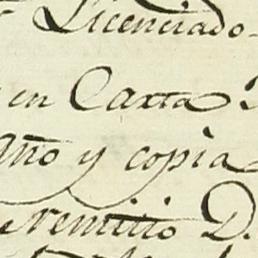 Licenciado
en Carta
Año y copia
remitio D.